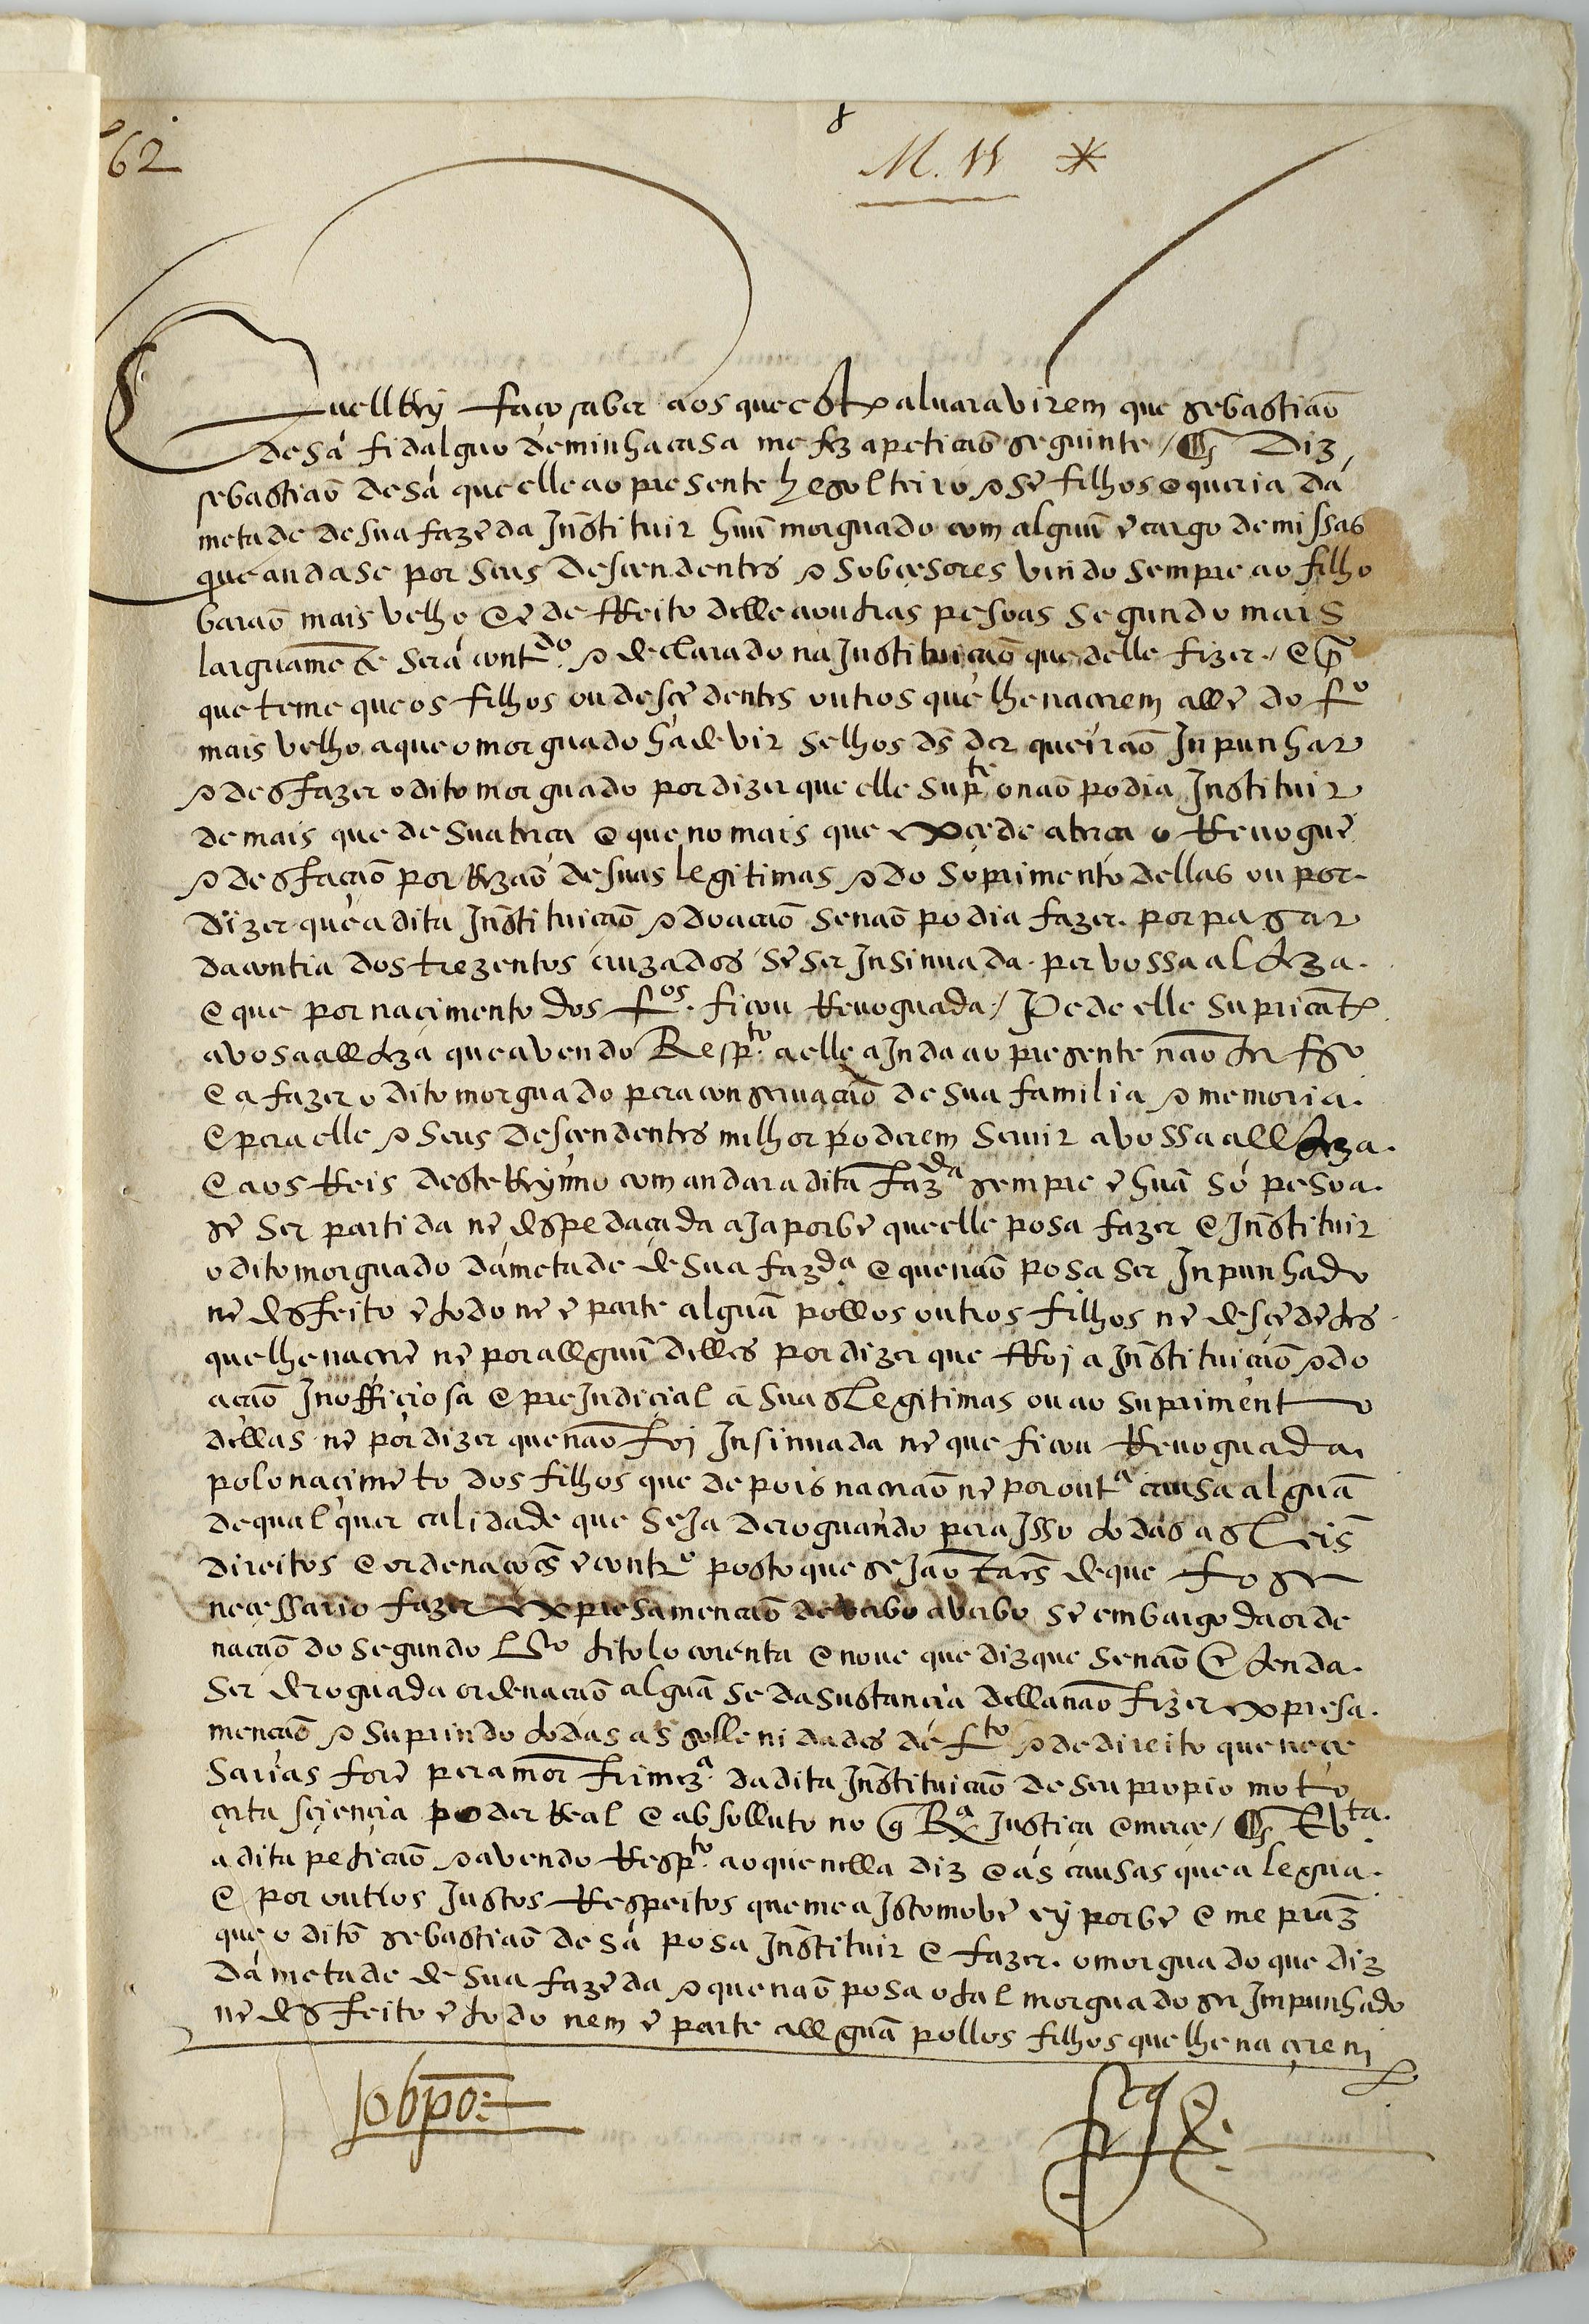 62
M. 11 *
Eu ell Rey faço saber aos que este aluara virem que sebastiaõ
de sá fidalguo de minha casa me fez a petiçaõ seguinte / ¶ Diz
sebastiaõ de sá que elle ao presente he solteiro e sẽ filhos e queria da
metade de sua fazẽda Instituir huũ morguado com alguũ ẽcargo de missas
que andase por seus descendentes e sobcesores vindo sempre ao filho
baraõ mais velho e ẽ defeito delle a outras pesoas segundo mais
larguamẽte será contdo. e declarado na Instituiçaõ que delle fizer. /
que teme que os filhos ou descẽdentes outros que lhe nacerem allẽ do fo
mais velho a que o morguado há de vir se lhos ds der queiraõ Inpunhar
e desfazer o dito morguado por dizer que elle supte o naõ podia Instituir
de mais que de sua terça e que no mais que excede a terça o Revoguẽ
e desfaçaõ por Rezaõ de suas legitimas e do soprimento dellas ou por
dizer que a dita Instituiçaõ e doaçaõ se naõ podia fazer. por pasar
da contia dos trezentos cruzados sẽ ser Insinuada per vossa alteza.
e que por nacimento dos fos. ficou Revoguada / Pede elle supricãte
a vosa allteza que avendo Respto. a elle aJnda ao presente naõ ter fo
e a fazer o dito morguado pera conservaçaõ de sua familia e memoria.
e pera elle e seus descendentes milhor poderem seruir a vossa allteza.
e aos Reis deste Reyno com andar a dita fazda sempre ẽ huã só pesoa.
sẽ ser partida nẽ despedaçada aja por bẽ que elle posa fazer e Instituir
o dito morguado da metade de sua fazda e que naõ posa ser Inpunhado
nẽ desfeito ẽ todo nẽ ẽ parte alguã pollos outros filhos nẽ descẽdẽtes
que lhe nacerẽ nẽ por allguũ delles por dizer que foj a Instituiçaõ e do
açaõ Inofficiosa e preJudicial a suas legitimas ou ao supriment o
dellas nẽ por dizer que naõ foj Insinuada nẽ que ficou Revoguada
polo nacimẽto dos filhos que depois naçaõ nẽ por outra causa alguã
de qual quer calidade que seJa deroguando pera Jsso todas as leis
direitos e ordenaçoẽs ẽ contro posto que seJaõ taes de que fose
necessario fazer expresa mençaõ de verbo a verbo sẽ embargo da orde
naçaõ do segundo lo titolo corenta e noue que diz que se naõ ẽtenda.
ser deroguada ordenaçaõ alguã se da sustancia della naõ fizer expresa.
mençaõ e suprindo todas as solenidades de fto e de direito que nece
sarias forẽ pera mor firmeza. da dita Instituiçaõ de seu propio moto
certa sciencia poder Real e absolluto no q Ra Justiça e merce / ¶ vta.
a dita petiçaõ e avendo Respto. ao que nella diz e ás causas que alegua.
e por outros Justos Respeitos que me a Jsto mouẽ ey por bẽ e me praz
que o dito sebastiaõ de sá posa Instituir e fazer. o morguado que diz
da metade de sua fazẽda e que naõ posa o tal morguado ser Impunhado
nẽ desfeito ẽ todo nem ẽ parte allguã pollos filhos que lhe nacerem